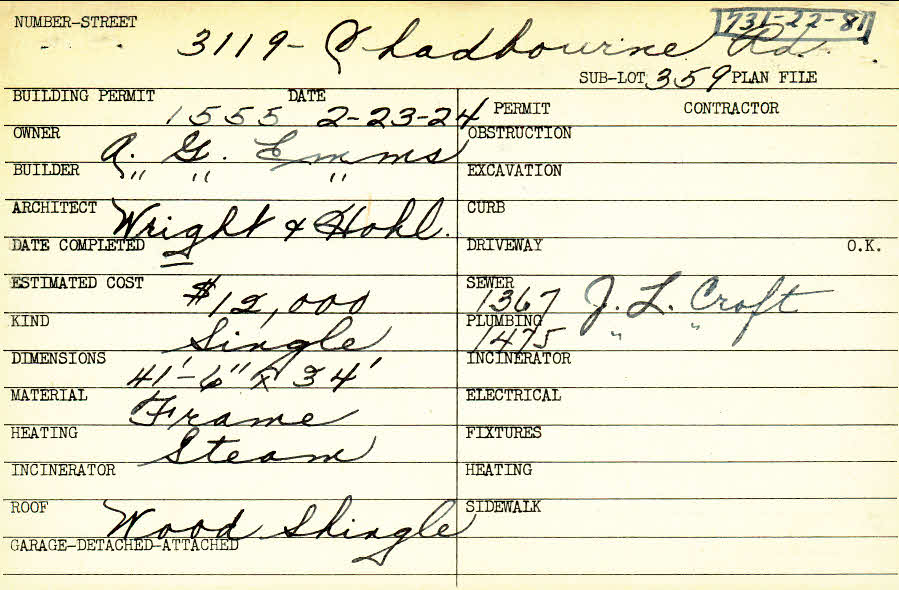 NUMBER-STREET 731-22-81
3119- Chadbourne Rd.
SUB-LOT 359 PLAN FILE
BUILDING PERMIT 1555 DATE 2-23-24
OWNER A. G. Emms
BUILDER " " "
ARCHITECT Wright & Hohl.
DATE COMPLETED
ESTIMATED COST $12,000
KIND Single
DIMENSIONS 41'-6" x 34'
MATERIAL Frame
HEATING Steam
INCINERATOR
ROOF Wood Shingle
GARAGE-DETACHED-ATTACHED
PERMIT CONTRACTOR
OBSTRUCTION
EXCAVATION
CURB
DRIVEWAY O.K.
SEWER 1367 J. L. Croft
PLUMBING 1475 " "
INCINERATOR
ELECTRICAL
FIXTURES
HEATING
SIDEWALK